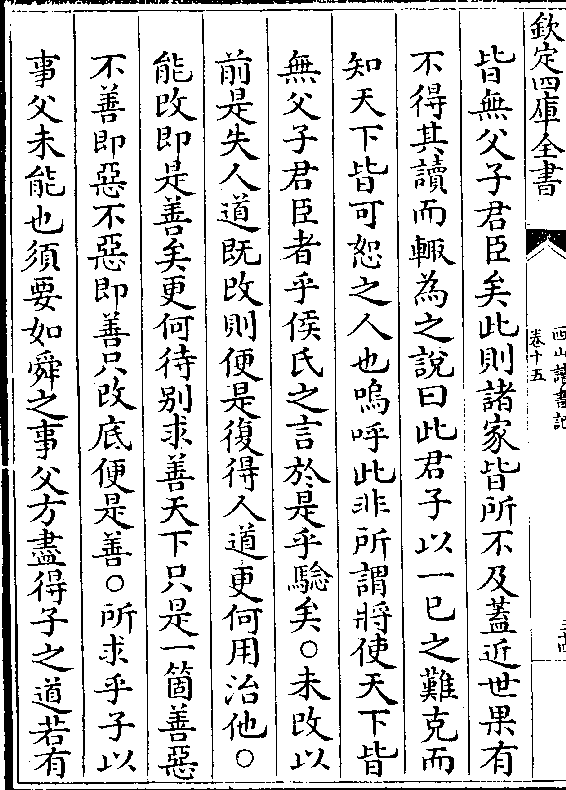 欽定四庫全書
西山讀書記
卷十五
三十四
皆無父子君臣矣此則諸家皆所不及蓋近世果有
不得其讀而輙為之說曰此君子以一已之難克而
知天下皆可恕之人也嗚呼此非所謂將使天下皆
無父子君臣者乎侯氏之言於是乎驗矣○未改以
前是失人道既改則便是復得人道更何用治他○
能改即是善矣更何待别求善天下只是一箇善惡
不善即惡不惡即善只改底便是善○所求乎子以
事父未能也須要如舜之事父方盡得子之道若有